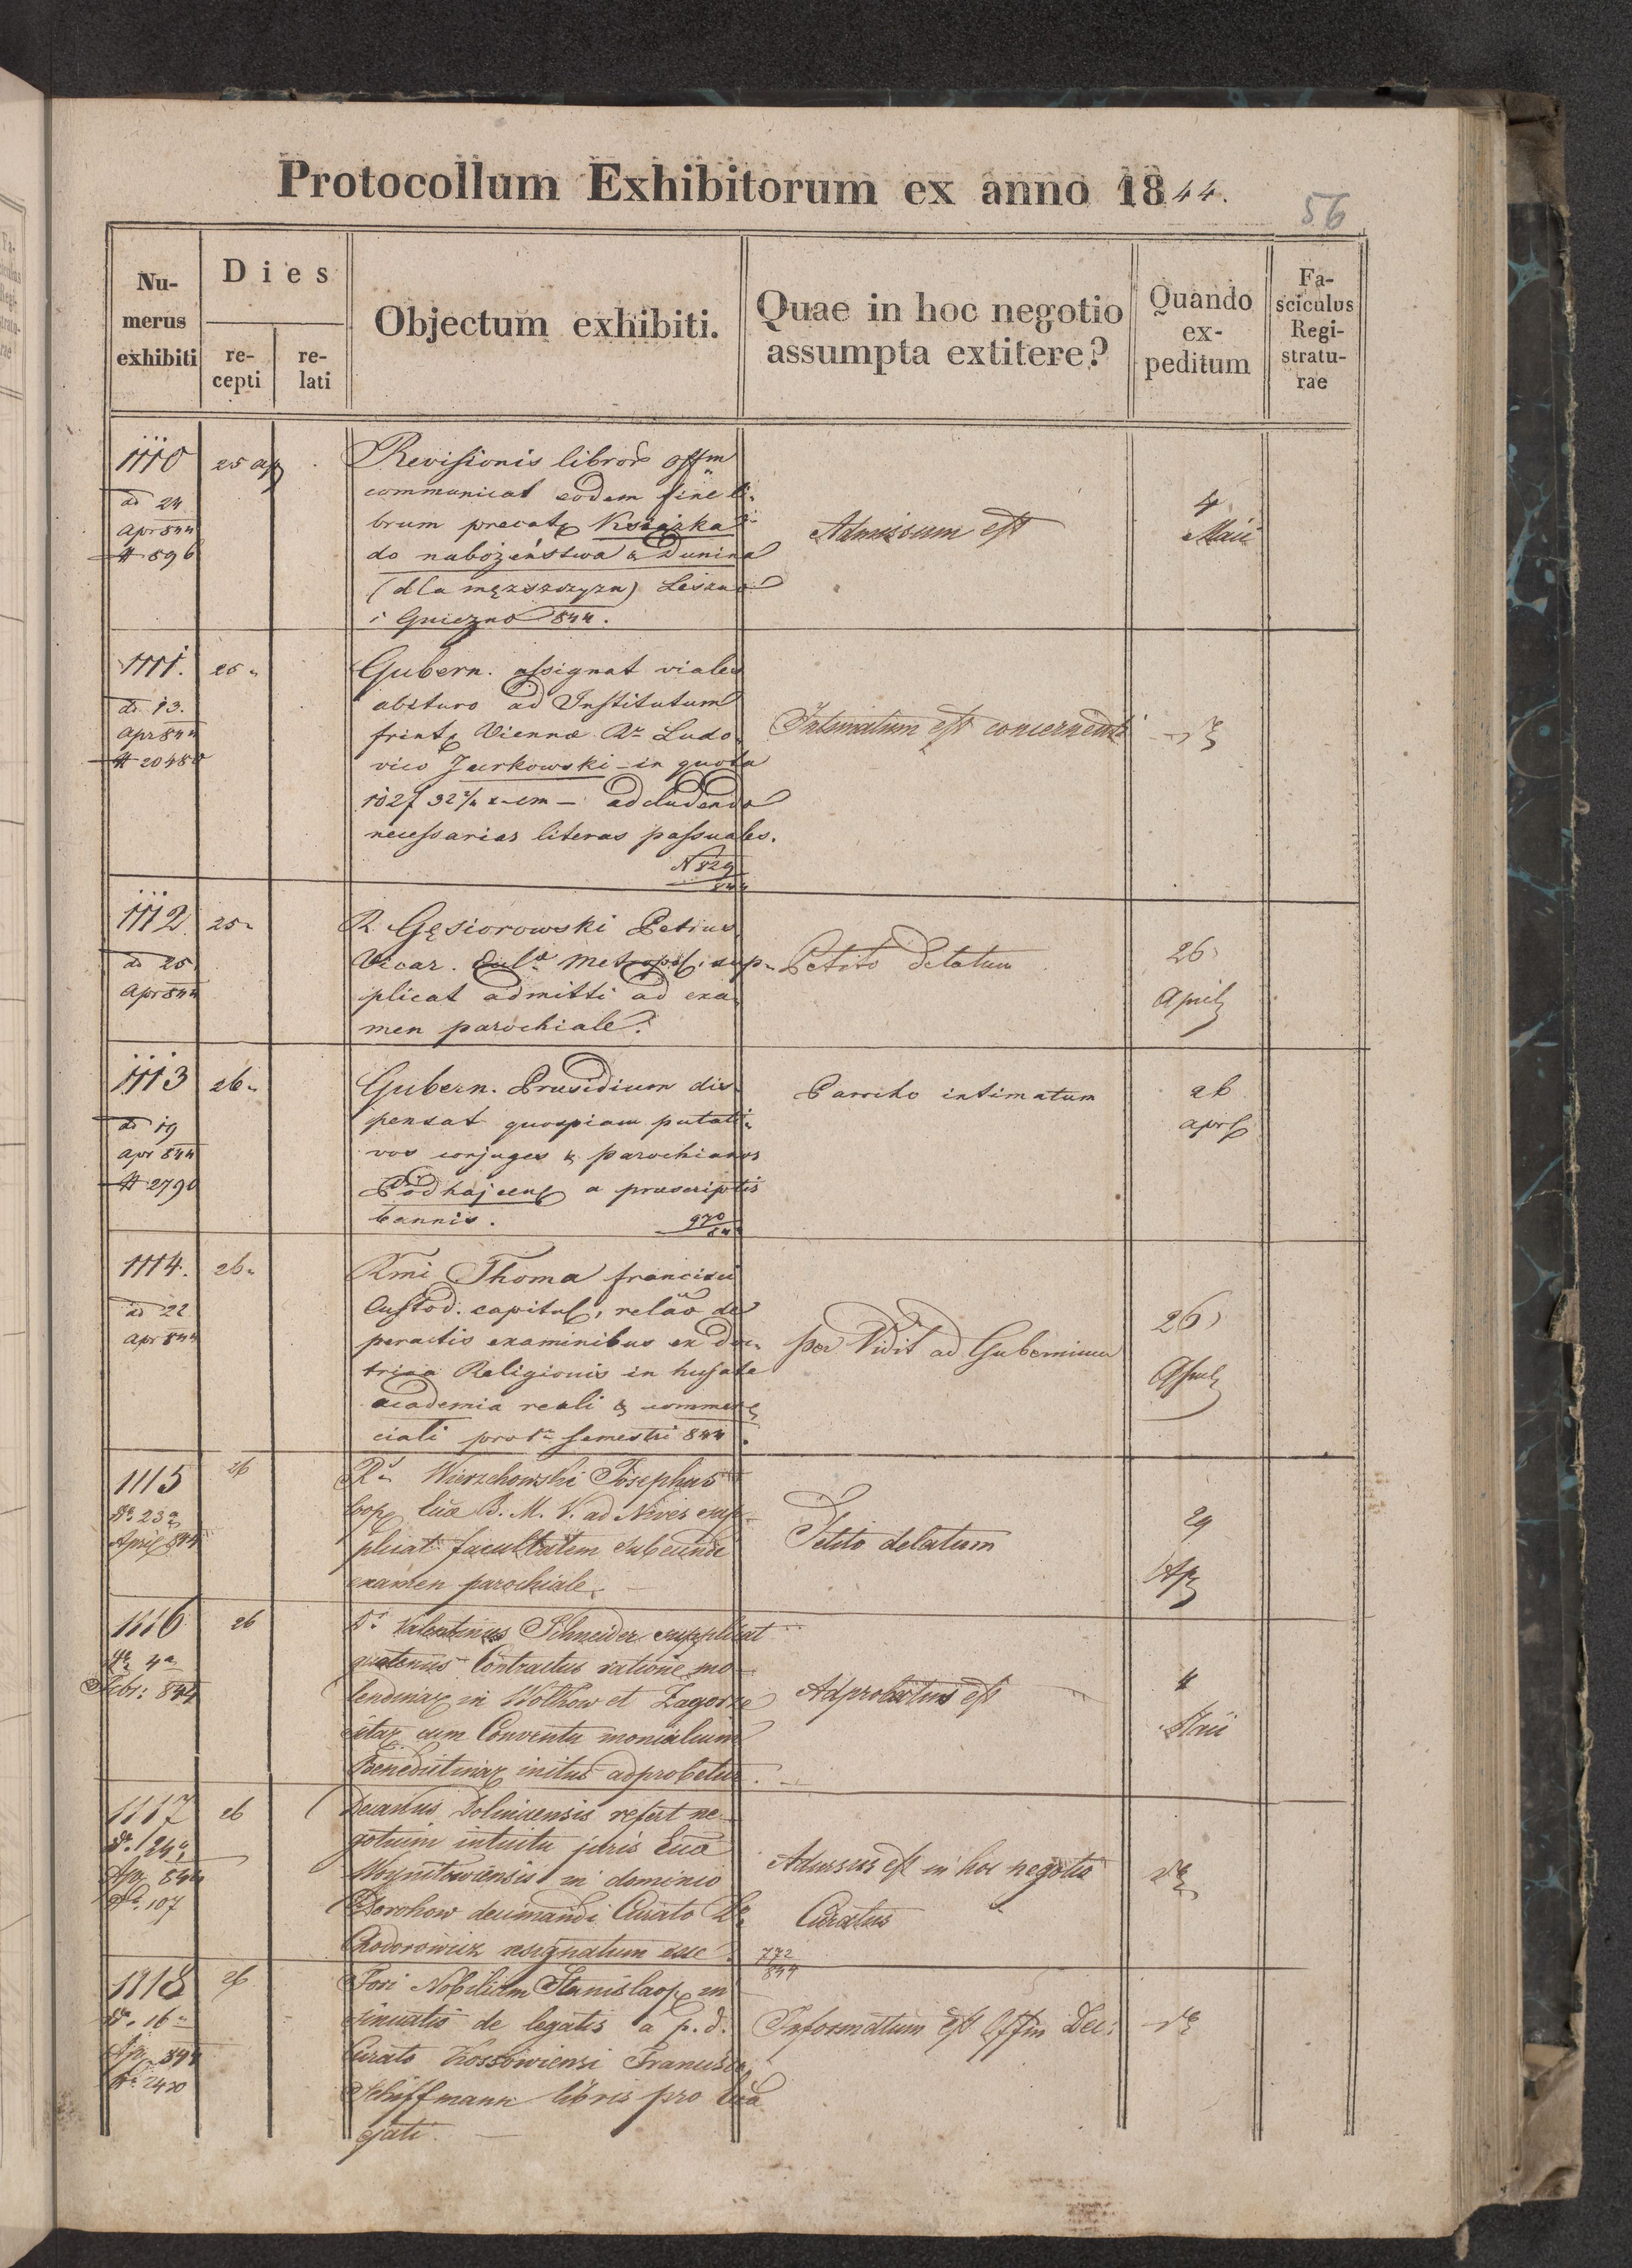 Protocollum Exhibitorum ex anno 1844.
56
Nu-
merus
exhibiti
Dies
re-
cepti
re-
lati
Objectum exhibiti.
Quae in hoc negotio
assumpta extitere?
Quando
ex-
peditum
Fa-
sciculus
Regi-
stratu-
rae
1110
25 ap
dd 24
Apr 844
N 896
Revisionis libror offm
communicat eodem fine li-
brum precat Książka
do nabożeństwa & Dunina
(dla męższczyzn) Leszno
i Gniezno 844.
Admissum est
4
Maii
1111.
25 "
dd 13.
Apr 844
N 20480
Gubern. assignat viales
abituro ad Institutum
frint Viennæ Dr Ludo-
vico Jurkowski - in quota
102f 32 x cm - adcludendo
necessarias literas passuales.
N 829
844
Intimatum est concernenti
1112
25 "
dd 25
Apr 844
R. Gęsiorowski Petrus
Vicar. Metropol. sup-
plicat admitti ad exa-
men parochiale.
Petito delatum
26
April
1113
26 "
dd 19
Apr 844
N 2790
Gubern. Præsidium dis-
pensat quospiam putati-
vos conjuges & parochianos
Podhajcen a præscriptis
bannis.
970
844
Parocho intimatum
26
april
1114.
26 "
dd 22
Apr 844
Rmi Thoma francisci
Custod. capitul, relāo de
peractis examinibus ex doc-
trina Religionis in hujate
academia reali & commer-
ciali pro 1o semestri 844.
per Vidit ad Gubernium
26
April
1115
26
dd 23
April 844
Rs Wierzchowski Josephus
Coop Eccæ B. M. V. ad Nives sup-
plicat facultatem subeundi
examen parochiale. -
Petito delatum
29
Ap
1116
26
dd 4a
Febr: 844
Ds Valentinus Schneider supplicat
quatenus Contractus ratione mo-
lendinar in Wolkow et Zagorze
sitar cum Conventu monialium
Benedictinar initus adprobetur.
Adprobatus est
4
Maii
1117
26
dd 24a
Apr 844
N. 107
Decanus Dolinensis refert ne-
gotium intuitu juris Eccæ
Woynilowiensis in dominio
Dorohow decimandi Curato
Chodorowicz resignatum esse.
772
844
Adursus est in hoc negotio
Curatus
1118
26
dd 16a
Apr 844
N. 2420
Fori Nobilium Stanislaop in
sinuatio de legatis a p. d.
Curato Kossowiensi Francisco
Schiffmann libris pro Ecca
ejati. -
Informatum est Offm Dec: